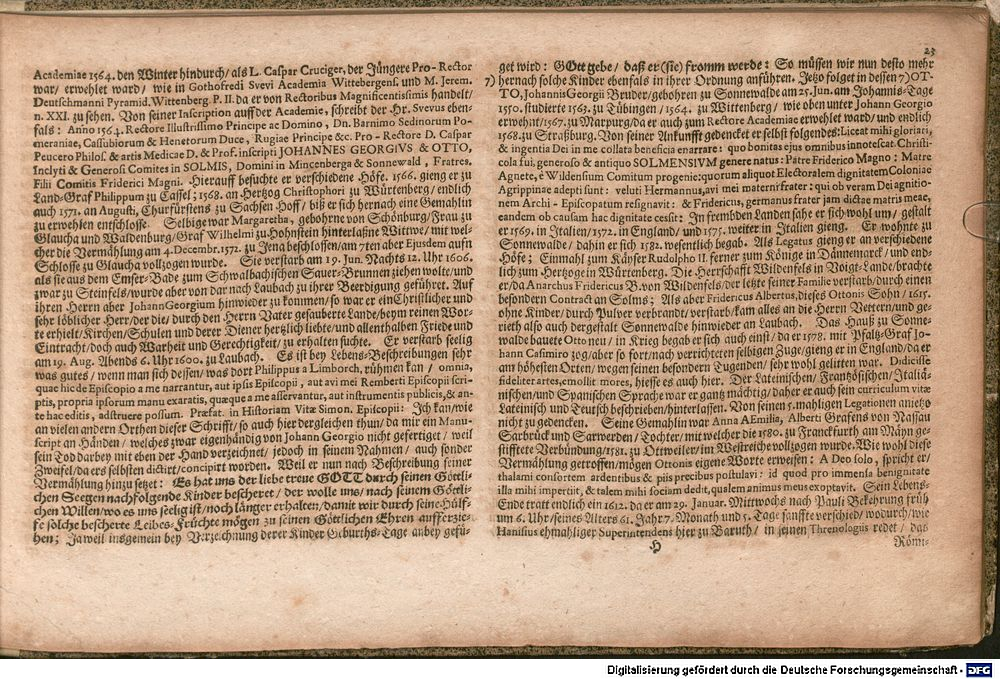 23
Academiae 1564. den Winter hindurch/ als L. Caspar Cruciger, der Jüngere Pro-Rector
war/ erwehlet ward/ wie in Gothofredi Svevi Academia Wittebergens. und M. Jerem.
Deutschmanni Pyramid. Wittenberg. P. II. da er von Rectoribus Magnificentissimis handelt/
n. XXI. zu sehen. Von seiner Inscription auff der Academie, schreibt der Hr. Svevus eben-
fals: Anno 1564. Rectore Illustrissimo Principe ac Domino, Dn. Barnimo Sedinorum Po-
meraniae, Cassubiorum & Henetorum Duce, Rugiae Principe &c. Pro-Rectore D. Caspar
Peucero Philos. & artis Medicae D. & Prof. inscripti JOHANNES GEORGIVS & OTTO,
Inclyti & Generosi Comites in SOLMIS, Domini in Mincenberga & Sonnewald, Fratres.
Filii Comitis Friderici Magni. Hierauff besuchte er verschiedene Höfe. 1566. gieng er zu
Land-Graf Philippum zu Cassel; 1568. an Hertzog Christophori zu Würtenberg/ endlich
auch 1571. an Augusti, Churfürstens zu Sachsen Hoff/ biß er sich hernach eine Gemahlin
zu erwehlen entschlosse. Selbige war Margaretha, gebohrne von Schönburg/ Frau zu
Glaucha und Waldenburg/ Graf Wilhelmi zu Hohnstein hinterlaßne Wittwe/ mit wel-
cher die Vermählung am 4. Decembr. 1572. zu Jena beschlossen/ am 7ten aber Ejusdem aufn
Schlosse zu Glaucha vollzogen wurde. Sie verstarb am 19. Jun. Nachts 12. Uhr 1606.
als sie aus dem Emser-Bade zum Schwalbachischen Sauer-Brunnen ziehen wolte/ und
zwar zu Steinfels/ wurde aber von dar nach Laubach zu ihrer Beerdigung geführet. Auf
ihren Herrn aber Johann Georgium hinwieder zu kommen/ so war er ein Christlicher und
sehr löblicher Herr/ der die/ durch den Herrn Vater gesauberte Lande/ beym reinen Wor-
te erhielt/ Kirchen/ Schulen und derer Diener hertzlich liebte/ und allenthalben Friede und
Eintracht/ doch auch Warheit und Gerechtigkeit/ zu erhalten suchte. Er verstarb seelig
am 19. Aug. Abends 6. Uhr 1600. zu Laubach. Es ist bey Lebens-Beschreibungen sehr
was gutes/ wenn man sich dessen/ was dort Philippus a Limborch, rühmen kan/ omnia,
quae hic de Episcopio a me narrantur, aut ipsis Episcopii, aut avi mei Remberti Episcopii scri-
ptis, propria ipsorum manu exaratis, quaeque a me asservantur, aut instrumentis publicis, & an-
te hac editis, adstruere possum. Praefat. in Historiam Vitae Simon. Episcopii: Ich kan/ wie
an vielen andern Orthen dieser Schrifft/ so auch hier dergleichen thun/ da mir ein Manu-
script an Händen/ welches zwar eigenhändig von Johann Georgio nicht gefertiget/ weil
sein Tod darbey mit eben der Hand verzeichnet/ jedoch in seinem Nahmen/ auch sonder
Zweifel/ da ers selbsten dictirt/ concipirt worden. Weil er nun nach Beschreibung seiner
Vermählung hinzu setzet: Es hat uns der liebe treue GOTT durch seinen Göttli-
chen Seegen nachfolgende Kinder bescheret/ der wolle uns/ nach seinem Göttli-
chen Willen/ wo es uns seelig ist/ noch länger erhalten/ damit wir durch seine Hülf-
fe solche bescherte Leibes-Früchte mögen zu seinen Göttlichen Ehren aufferzie-
hen; Ja weil insgemein bey Verzeichnung derer Kinder Geburths-Tage anbey gefü-
get wird: GOtt gebe/ daß er (sie) fromm werde: So müssen wir nun desto mehr
hernach solche Kinder ebenfals in ihrer Ordnung anführen. Jetzo folget in dessen 7) OT-
7) TO, Johannis Georgii Bruder/ gebohren zu Sonnewalde am 25. Jun. am Johannis-Tage
1550. studierte 1563. zu Tübingen/ 1564. zu Wittenberg/ wie oben unter Johann Georgio
erwehnt/ 1567. zu Marpurg/ da er auch zum Rectore Academiae erwehlet ward/ und endlich
1568. zu Straßburg. Von seiner Ankunfft gedencket er selbst folgendes: Liceat mihi gloriari,
& ingentia Dei in me collata beneficia enarrare: quo bonitas ejus omnibus innotescat. Christi-
cola fui, generoso & antiquo SOLMENSIVM genere natus: Patre Friderico Magno: Matre
Agnete, è Wildensium Comitum progenie: quorum aliquot Electoralem dignitatem Coloniae
Agrippinae adepti sunt: veluti Hermannus, avi mei materni frater: qui ob veram Dei agnitio-
nem Archi-Episcopatum resignavit: & Fridericus, germanus frater jam dictae matris meae,
eandem ob causam hac dignitate cessit: In frembden Landen sahe er sich wohl um/ gestalt
er 1569. in Italien/ 1572. in England/ und 1575. weiter in Italien gieng. Er wohnte zu
Sonnewalde/ dahin er sich 1582. wesentlich begab. Als Legatus gieng er an verschiedene
Höfe; Einmahl zum Käyser Rudolpho II. ferner zum Könige in Dännemarck/ und end-
lich zum Hertzoge in Würtenberg. Die Herrschafft Wildenfels in Voigt-Lande/ brachte
er/ da Anarchus Fridericus B. von Wildenfels/ der letzte seiner Familie verstarb/ durch einen
besondern Contract an Solms; Als aber Fridericus Albertus, dieses Ottonis Sohn/ 1615.
ohne Kinder/ durch Pulver verbrandt/ verstarb/ kam alles an die Herren Vettern/ und ge-
rieth also auch dergestalt Sonnewalde hinwieder an Laubach. Das Hauß zu Sonne-
walde bauete Otto neu/ in Krieg begab er sich auch einst/ da er 1578. mit Pfaltz-Graf Jo-
hann Casimiro zog/ aber so fort/ nach verrichteten selbigen Zuge/ gieng er in England/ da er
am höhesten Orten/ wegen seinen besondern Tugenden/ sehr wohl gelitten war. Didicisse
fideliter artes, emollit mores, hiesse es auch hier. Der Lateinischen/ Frantzösischen/ Italiä-
nischen/ und Spanischen Sprache war er gantz mächtig/ daher er auch sein curriculum vitae
Lateinisch und Teutsch beschrieben/ hinterlassen. Von seinen 5. mahligen Legationen anietzo
nicht zu gedencken. Seine Gemahlin war Anna AEmilia, Alberti Grafens von Nassau
Sarbrück und Sarwerden/ Tochter/ mit welcher die 1580. zu Franckfurth am Mäyn ge-
stifftete Verbündung/ 1581. zu Ottweiler/ im Westreiche vollzogen wurde. Wie wohl diese
Vermählung getroffen/ mögen Ottonis eigene Worte erweisen: A Deo solo, spricht er/
thalami consortem ardentibus & piis precibus postulavi: id quod pro immensa benignitate
illa mihi impertiit, & talem mihi sociam dedit, qualem animus meus exoptavit. Sein Lebens-
Ende tratt endlich ein 1612. da er am 29. Januar. Mittwochs nach Pauls Bekehrung früh
um 6. Uhr/ seines Alters 61. Jahr 7. Monath und 5. Tage sanffte verschied/ wodurch/ wie
Hanisius ehmahliger Superintendens hier zu Baruth/ in seinen Threnologiis redet/ das
H
Römi-
Digitalisierung gefördert durch die Deutsche Forschungsgemeinschaft - DFG